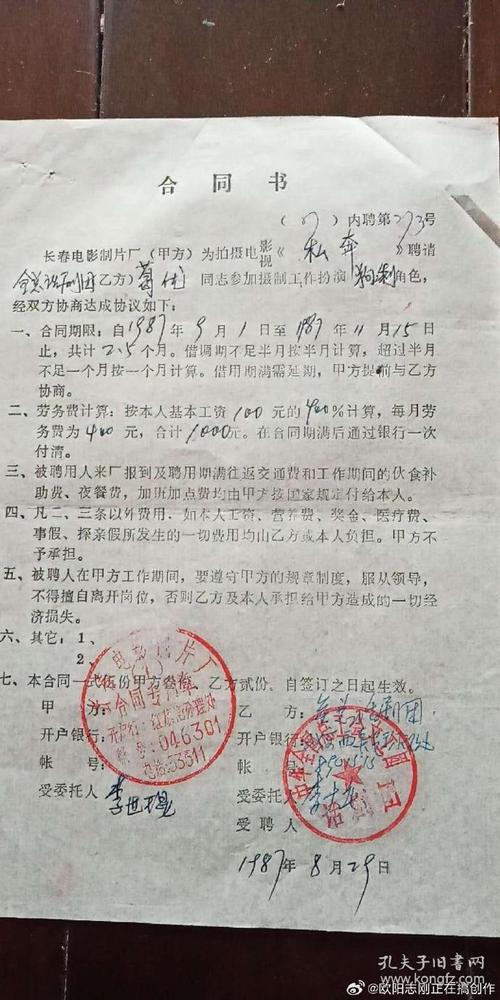 合同书
(87)内聘第273号
长春电影制片厂(甲方)为拍摄电影视《私奔》聘请
全总话剧团(乙方)葛优同志参加摄制工作扮演 角色,
经双方协商达成协议如下:
一、合同期限:自1987年9月1日至1987年11月15日
止,共计2.5个月。借调期不足半月按半月计算,超过半月
不足一个月按一个月计算。借用期满需延期,甲方提前与乙方
协商。
二、劳务费计算:按本人基本工资100元的400%计算,每月劳
务费为400元,合计1000元。在合同期满后通过银行一次
付清。
三、被聘用人来厂报到及聘用期满往返交通费和工作期间的伙食补
助费、夜餐费,加班加点费均由甲方按国家规定付给本人。
四、凡二、三条以外费用.如本人工资、营养费、奖金、医疗费、
事假、探亲假所发生的一切费用均由乙方或本人负担。甲方不
予承担。
五、被聘人在甲方工作期间,要遵守甲方的规章制度,服从领导,
不得擅自离开岗位,否则乙方及本人承担给甲方造成的一切经
济损失。
六、其它:1、
2、
七、本合同一式伍份甲方叁份,乙方贰份,自签订之日起生效。
甲方: 乙方:全总话剧团
开户银行: 开户银行:
帐号: 帐号:
受委托人 李世 受委托人 李
受聘人
1987年8月29日
电影制片厂
合同专用章
开户行:红旗街办理处
帐号:046301
电话:53311
中华全国总工会
话剧团
孔夫子旧书网
www.kongfz.com
@欧阳志刚正在搞创作